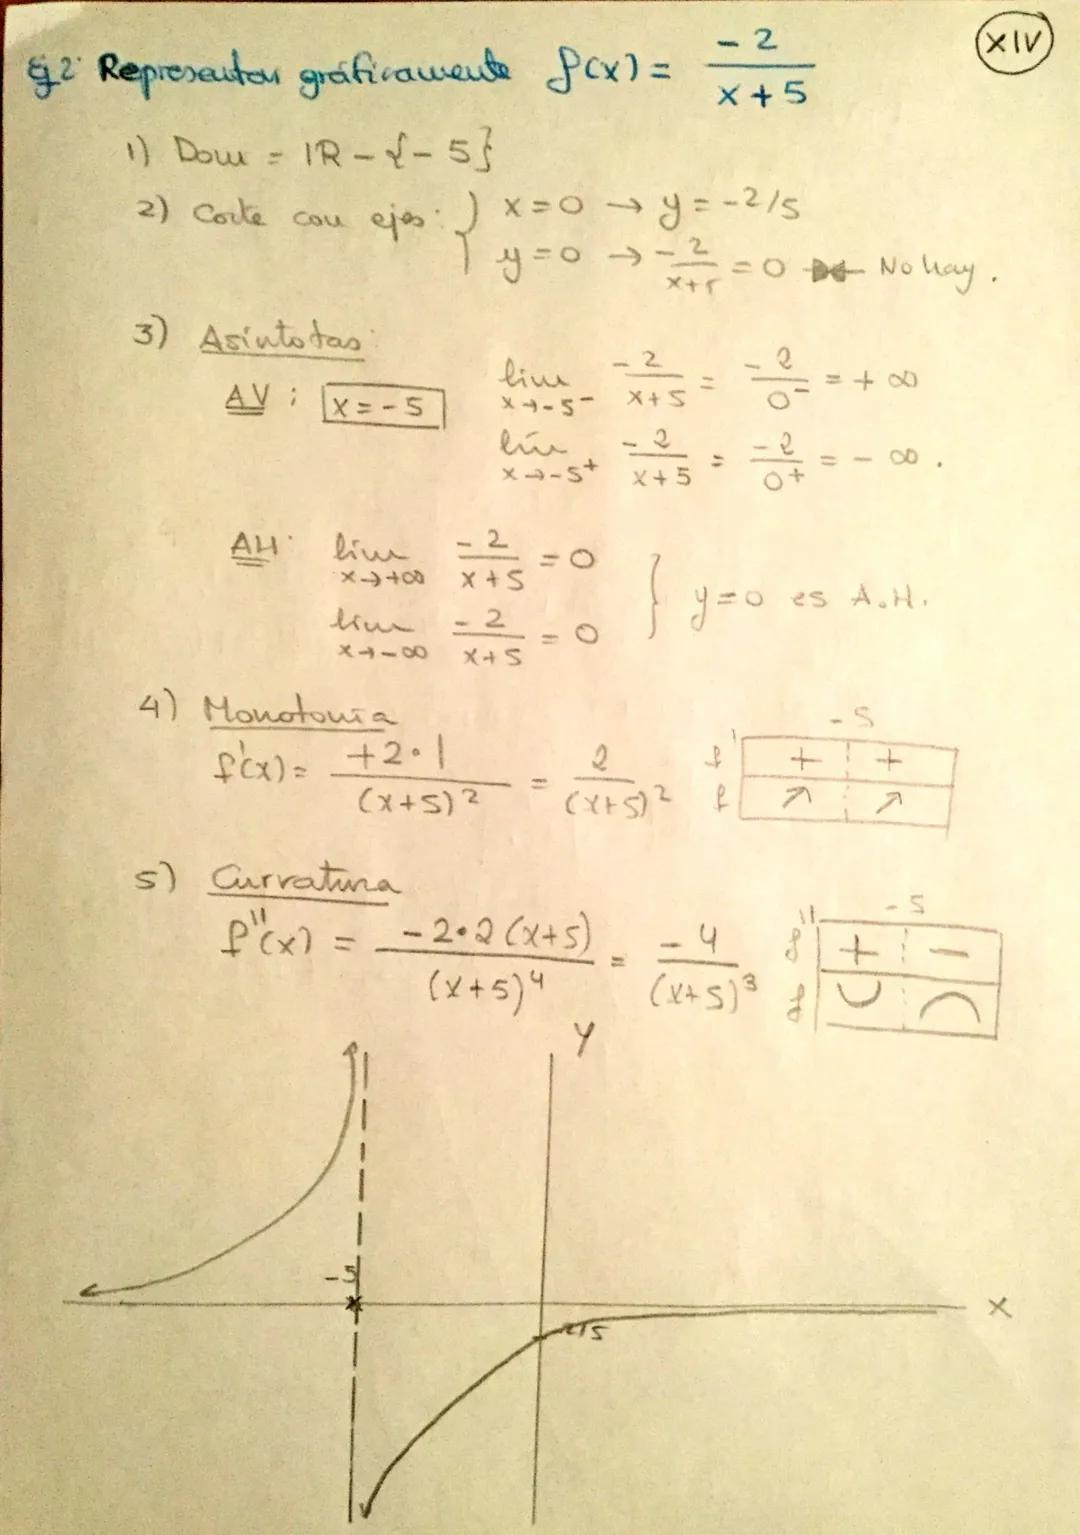 XIV
Ej 2: Representar gráficamente f(x) = -2/(x+5)
1) Dom = IR - {-5}
2) Corte con ejes: { x=0 → y = -2/5
y=0 → -2/(x+5) = 0 No hay.
3) Asíntotas:
AV: x=-5 lim x→-5⁻ -2/(x+5) = -2/0⁻ = +∞
lim x→-5⁺ -2/(x+5) = -2/0⁺ = -∞.
AH: lim x→+∞ -2/(x+5) = 0
lim x→-∞ -2/(x+5) = 0 } y=0 es A.H.
4) Monotonía -5
f'(x) = +2·1/(x+5)² = 2/(x+5)² f' + +
f ↗ ↗
5) Curvatura -5
f''(x) = -2·2(x+5)/(x+5)⁴ = -4/(x+5)³ f'' + -
f ∪ ∩
Y
-5
X
-2/5